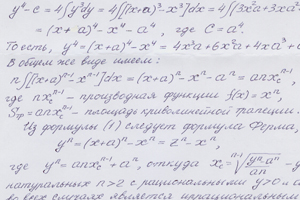 y⁴-c = 4∫y³dy = 4∫[(x+a)³-x³]dx = 4∫(3x²a+3xa²
= (x+a)⁴-x⁴-a⁴, где C=a⁴.
То есть, y⁴=(x+a)⁴-x⁴ = 4x³a+6x²a²+4xa³+
В общем же виде имеем:
n∫[(x+a)ⁿ⁻¹-xⁿ⁻¹]dx=(x+a)ⁿ-xⁿ-aⁿ=anxcⁿ⁻¹,
где nxcⁿ⁻¹ - производная функции f(x)=xⁿ,
Sтр=axcⁿ⁻¹ - площадь криволинейной трапеции.
Из формулы (1) следует формула Ферма
yⁿ=(x+a)ⁿ-xⁿ=zⁿ-xⁿ,
где yⁿ=anxcⁿ⁻¹+aⁿ, откуда xc=ⁿ⁻¹√(yⁿ-aⁿ)/an -
натуральных n>2 с рациональными y>0 и
случаях является иррациональным